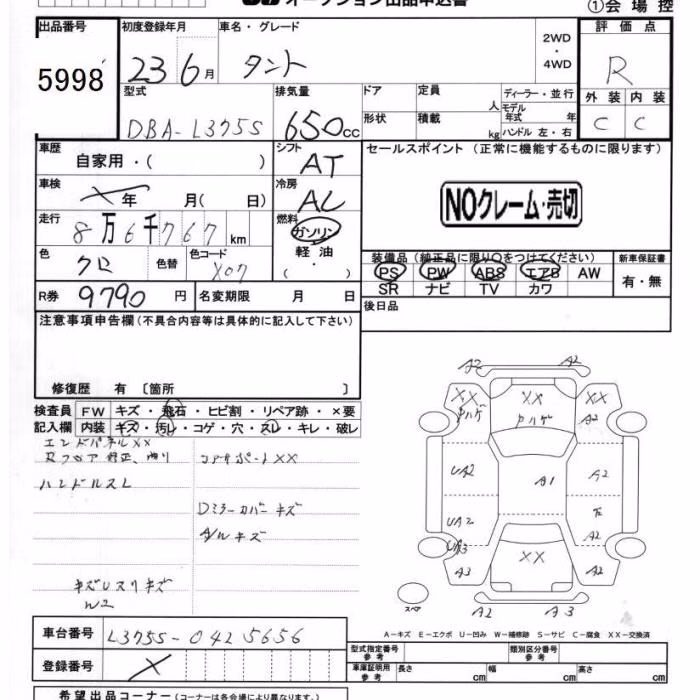 オークション出品申込書
①会場控
出品番号 初度登録年月 車名・グレード 2WD・4WD 評価点
5998 23 6月 タント R
型式 排気量 ドア 定員 人 ディーラー・並行 外装 内装
DBA-L375S 650cc 形状 積載 kg モデル年式 年 ハンドル 左・右 C C
車歴 シフト セールスポイント (正常に機能するものに限ります)
自家用・( ) AT
車検 冷房
X年 月( 日) AC NOクレーム・売切
走行 燃料
8万6千767km ガソリン
軽油
・( )
色 色替 色コード 装備品 (純正品に限り〇をつけてください) 新車保証書
クロ X07 PS PW ABS エアB AW 有・無
SR ナビ TV カワ
R券 9790円 名変期限 月 日 後日品
注意事項申告欄 (不具合内容等は具体的に記入して下さい)
修復歴 有 〔箇所 〕
検査員 FW キズ・飛石・ヒビ割・リペア跡・×要
記入欄 内装 キズ・汚レ・コゲ・穴・スレ・キレ・破レ
エンドパネルXX
コアサポートXX
ハンドルスレ
Dミラーカバーキズ
キズ
キズ
W2
A2 A2
XX XX XX
ハゲ ハゲ A2
UA2 A1 A2
UA2 A2
UA3 XX
A3 A2
スペア
A2 A3
A-キズ E-エクボ U-凹み W-補修跡 S-サビ C-腐食 XX-交換済
車台番号 L375S-0425656
登録番号 X
型式指定番号 参考 類別区分番号 参考
車庫証明用 参考 長さ cm 幅 cm 高さ cm
希望出品コーナー (コーナーは各会場により異なります。)